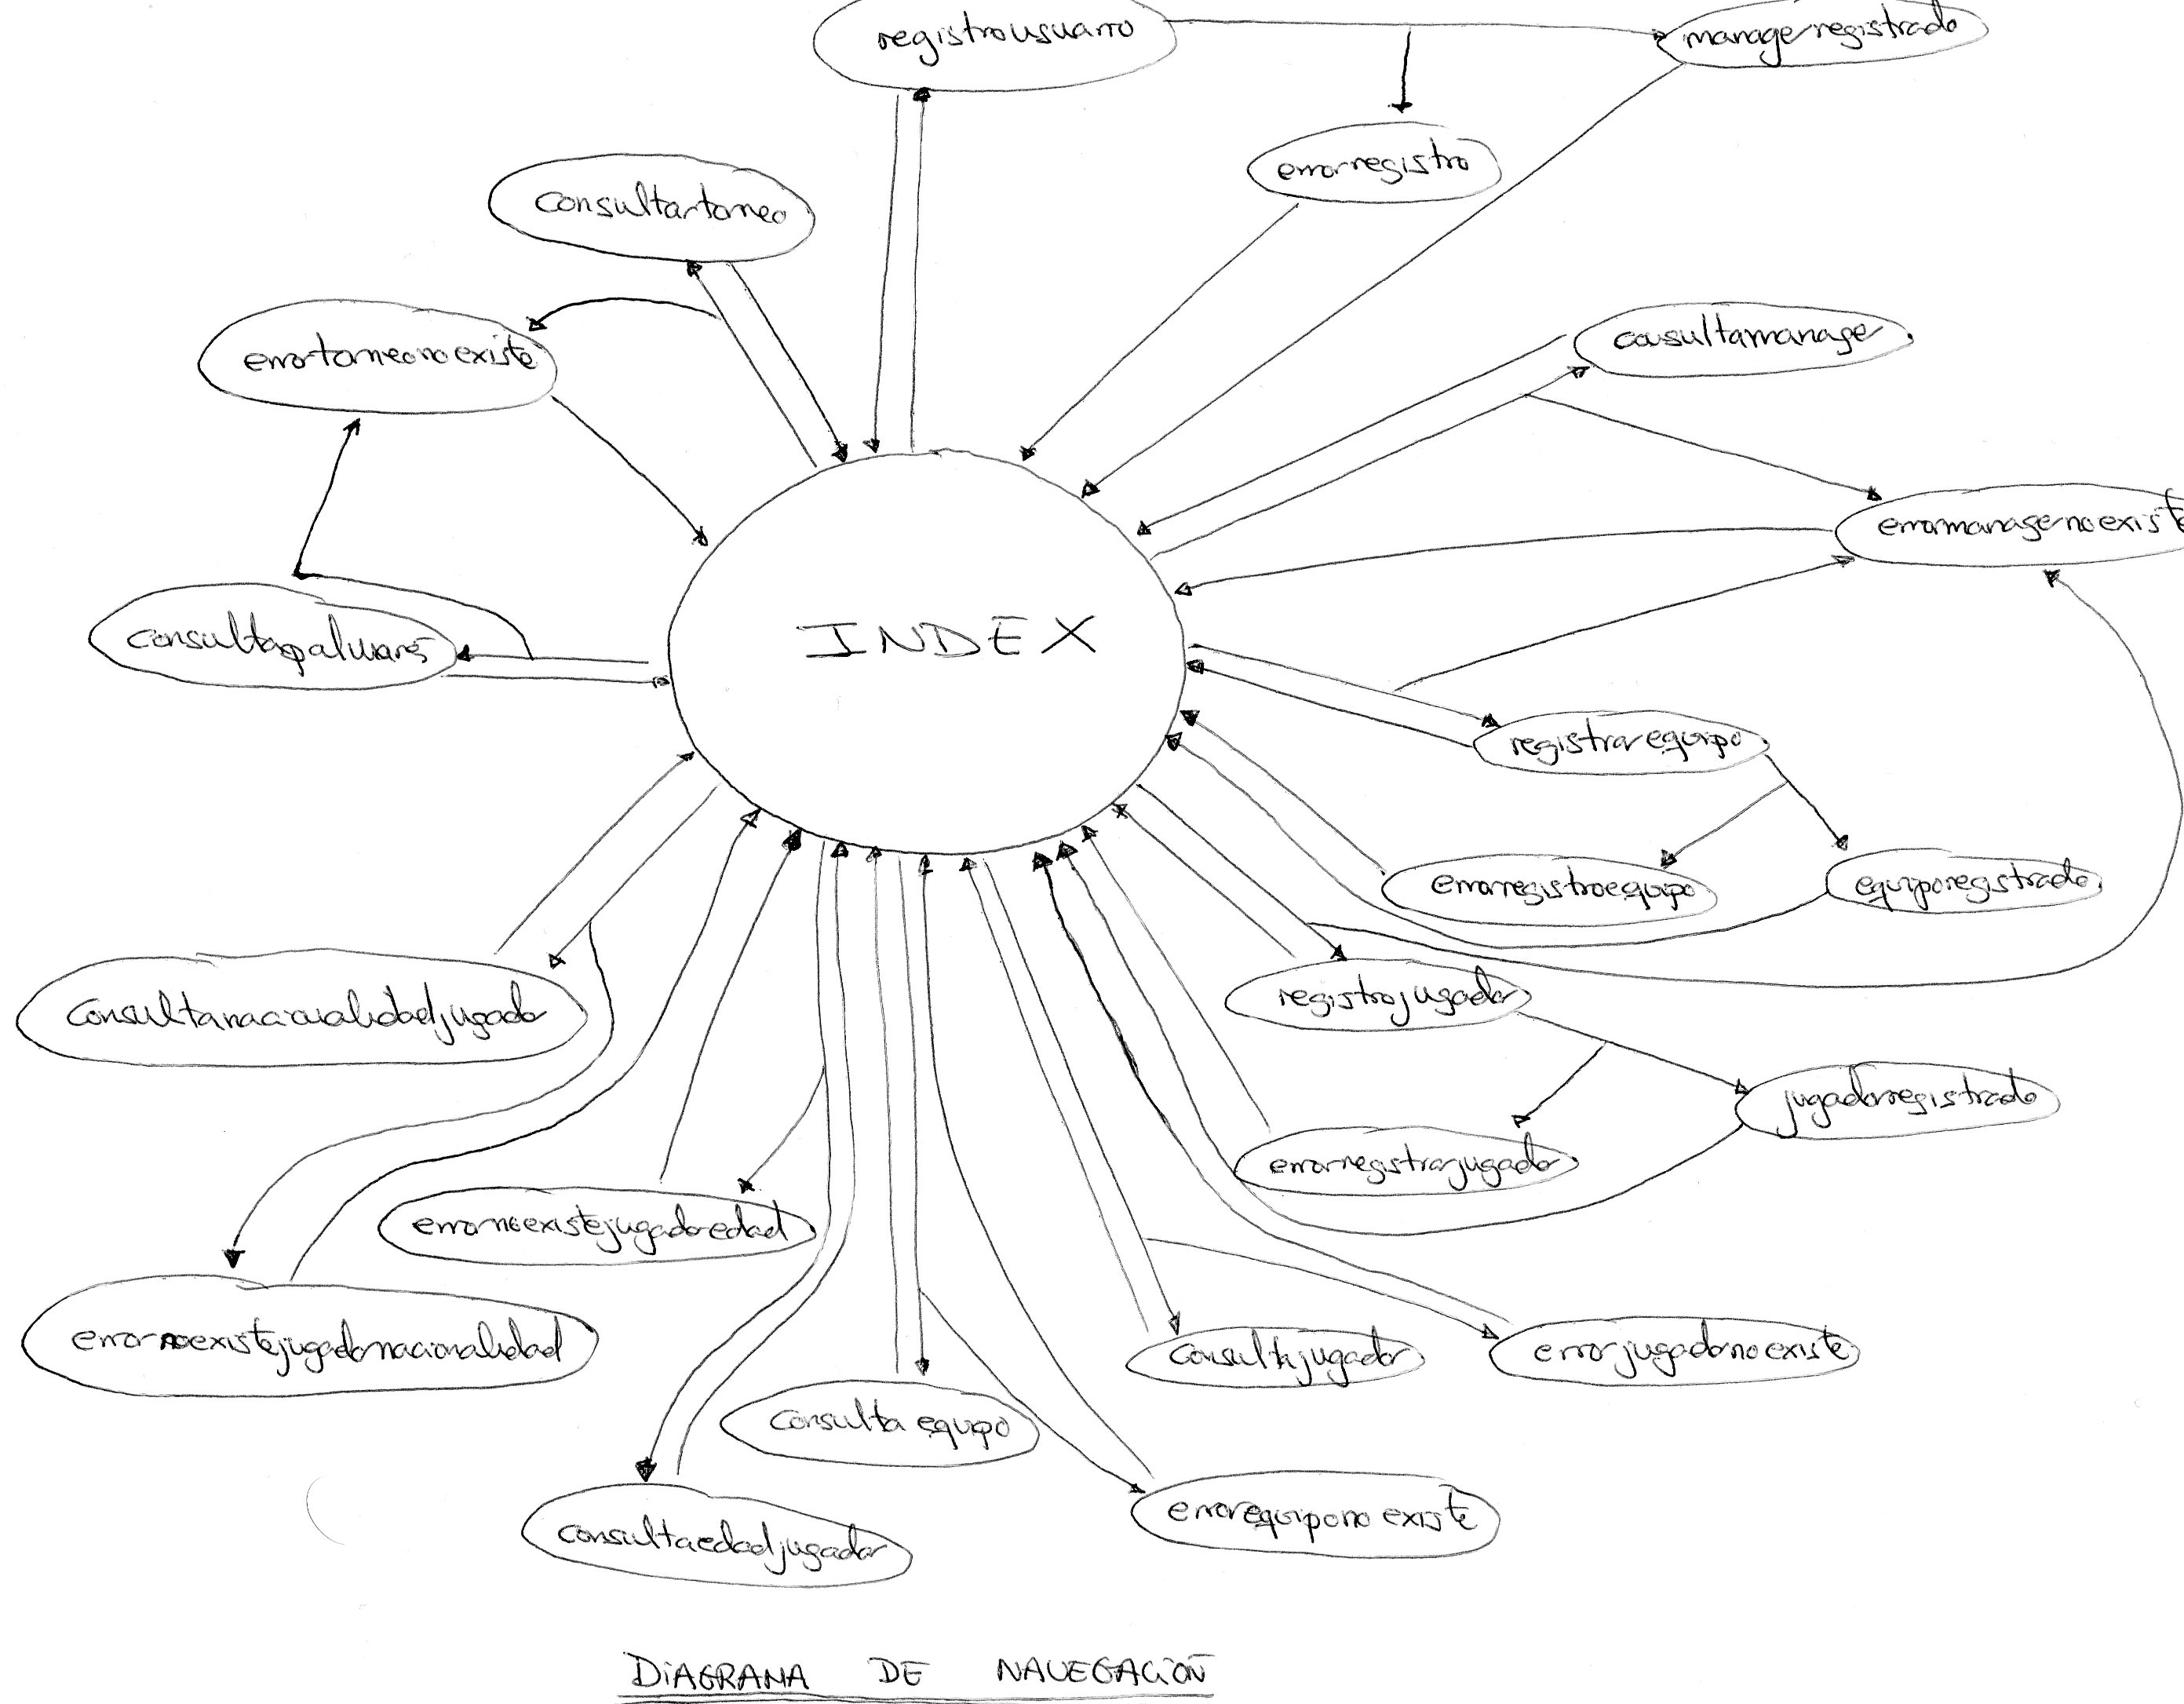 registrousuario
managerregistrado
errorregistro
consultartorneo
errortorneonoexiste
consultamanager
errormanagernoexiste
INDEX
registrarequipo
errorregistroequipo
equiporegistrado
consultanacionalidadjugador
registrojugador
jugadorregistrado
errorregistrarjugador
errornoexistejugadoredad
errornoexistejugadornacionalidad
consultajugador
errorjugadornoexiste
consulta equipo
errorequipono existe
consultaedadjugador
DIAGRAMA DE NAVEGACIÓN